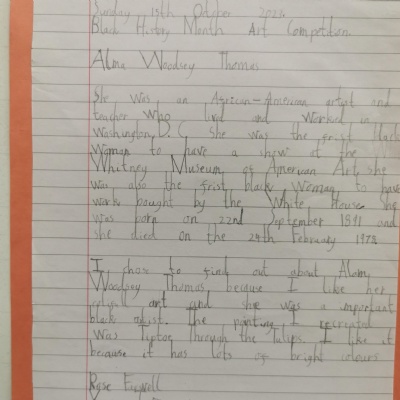 Sunday 13th October 2024
Black History Month Art Competition.
Alma Woodsey Thomas
She was an African-American artist and
teacher who lived and worked in
Washington, D.C. She was the frist black
Woman to have a show at the
Whitney Museum of American Art, she
was also the frist black Woman to have
work bought by the White House. She
was born on 22nd September 1891 and
she died on the 24th February 1978
I chose to find out about Alomy
Woodsey Thomas, because I like her
art and she was a mportant
black artist. The painting I recreated
Was Tiptoe Through the Tulips. I like it
because it has lots of bright colours
Rose